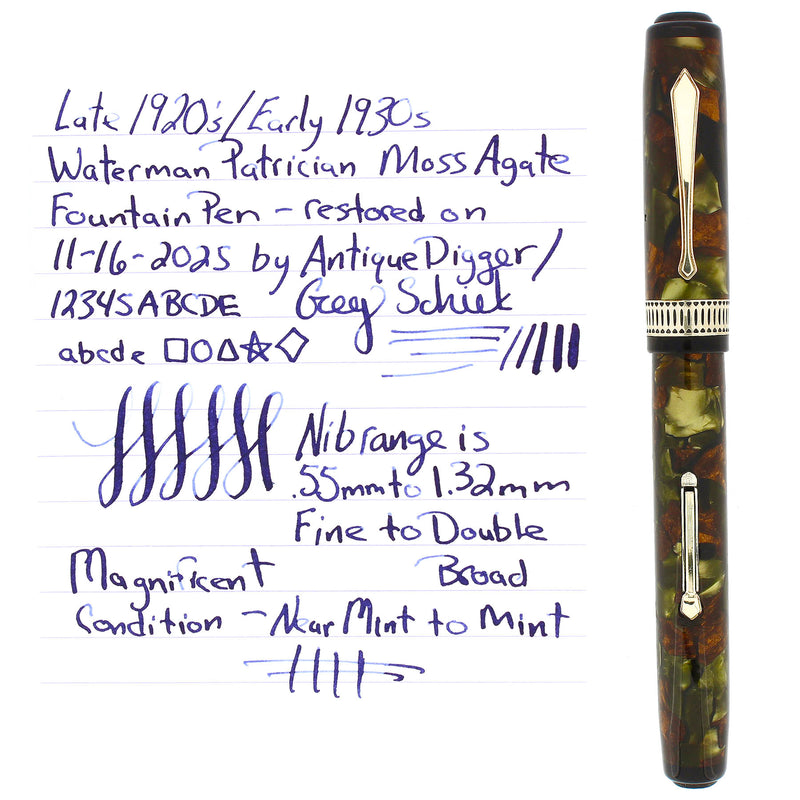 Late 1920's/Early 1930s
Waterman Patrician Moss Agate
Fountain Pen - restored on
11-16-2025 by Antique Digger/
12345ABCDE Greg Schiek
abcde
Nib range is
.55mm to 1.32mm
Fine to Double
Broad
Magnificent
Condition - Near Mint to Mint